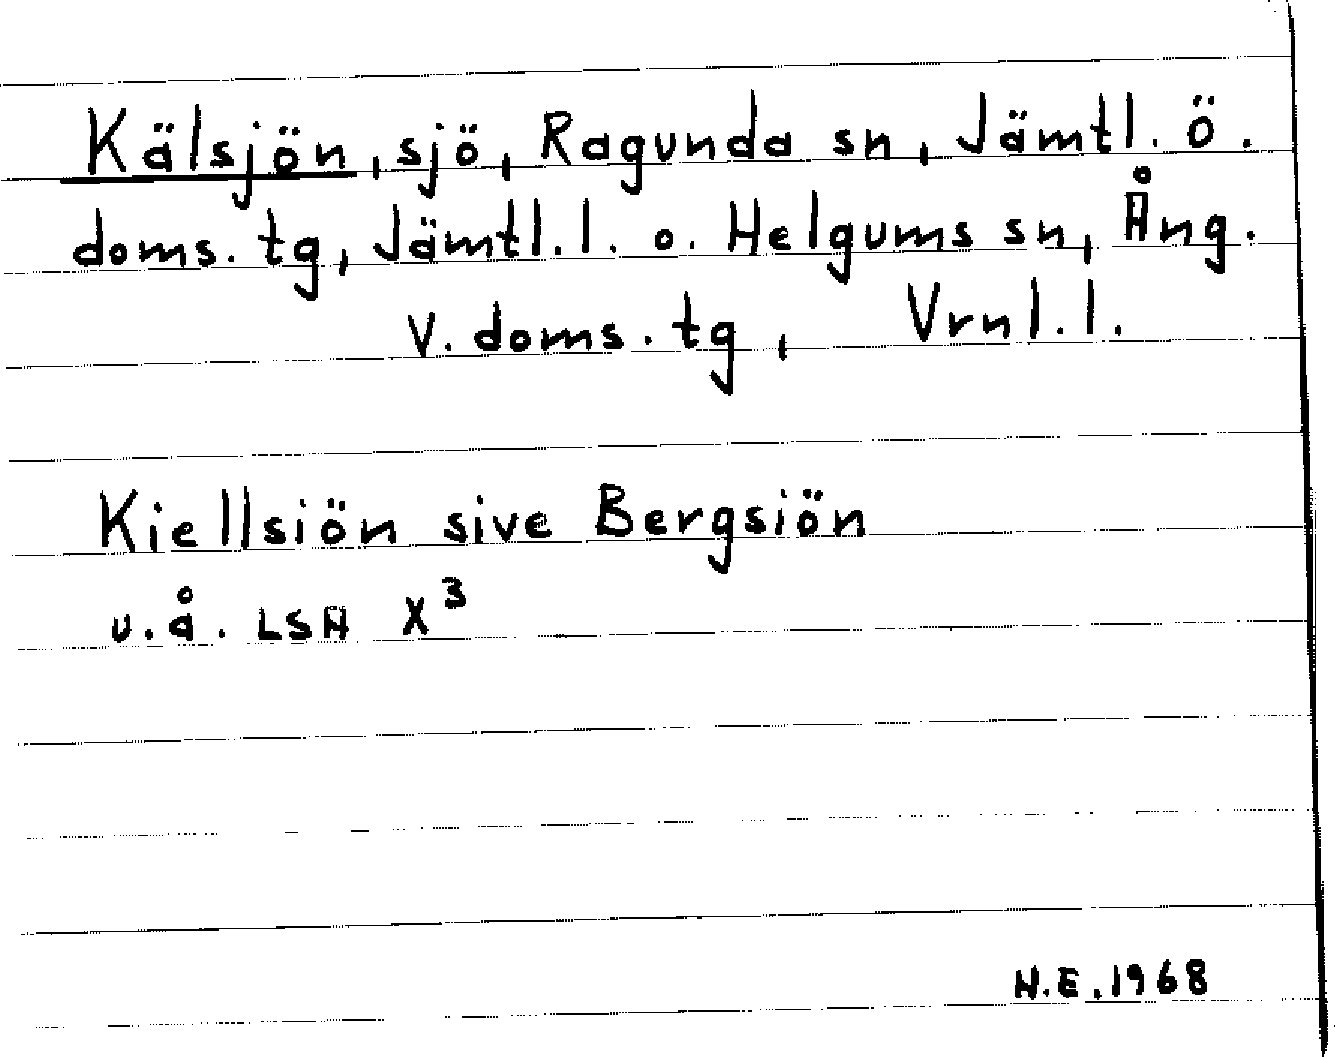 Kälsjön, sjö, Ragunda sn, Jämtl. ö.
doms. tg, Jämtl. l. o. Helgums sn, Ång.
V. doms. tg, Vrnl. l.
Kiellsiön sive Bergsiön
u.å. LSA X³
N.E. 1968